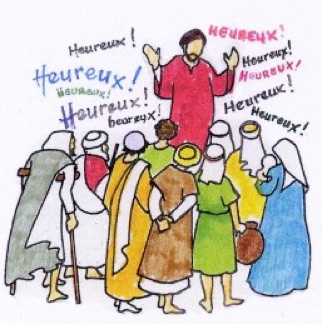 Heureux!
Heureux!
Heureux!
Heureux!
heureux!
Heureux!
Heureux!
Heureux!
Heureux!
Heureux!